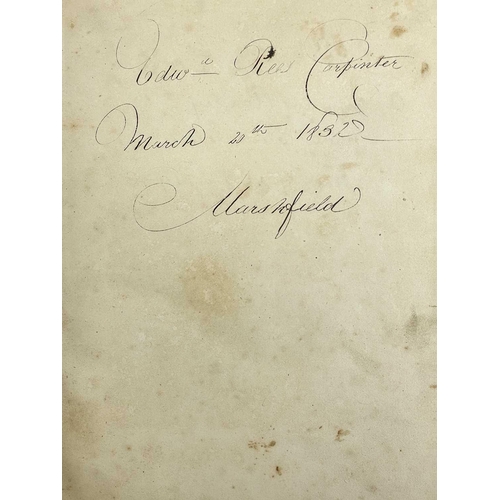 Edwd Rees Carpinter
March 21th 1832
Marshfield